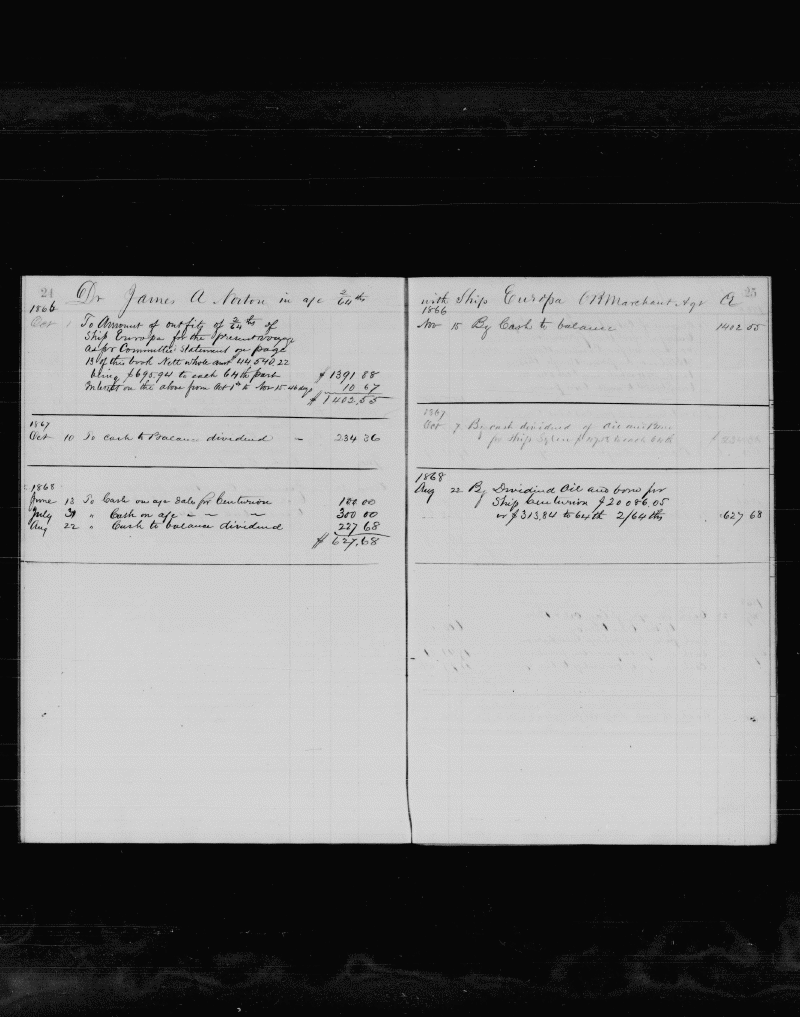 24
Dr James A Norton in a/c 2/64ths
1866
Oct 1 To Amount of outfits of 2/64ths of
Ship Europa for the present voyage
as pr Committee Statement on page
13 of this book Nett whole amt $44,540.22
being $695.94 to each 64th part $1391 88
Interest on the above from Oct 1st to Nov 15 46 days 10.67
$1402.55
1867
Oct 10 To Cash to Balance dividend 234 36
1868
June 13 To Cash on a/c Sales pr Centurion 100 00
July 31 " Cash on a/c 300 00
Aug 22 " Cash to balance dividend 227 68
$627.68
25
with Ship Europa C R Marchant Agt Cr
1866
Nov 15 By Cash to balance 1402 55
1867
Oct 7 By cash dividend of Oil and Bone
pr Ship
1868
Aug 22 By Dividend Oil and bone pr
Ship Centurion $20086.05
or $313.84 to 64th 2/64ths 627 68